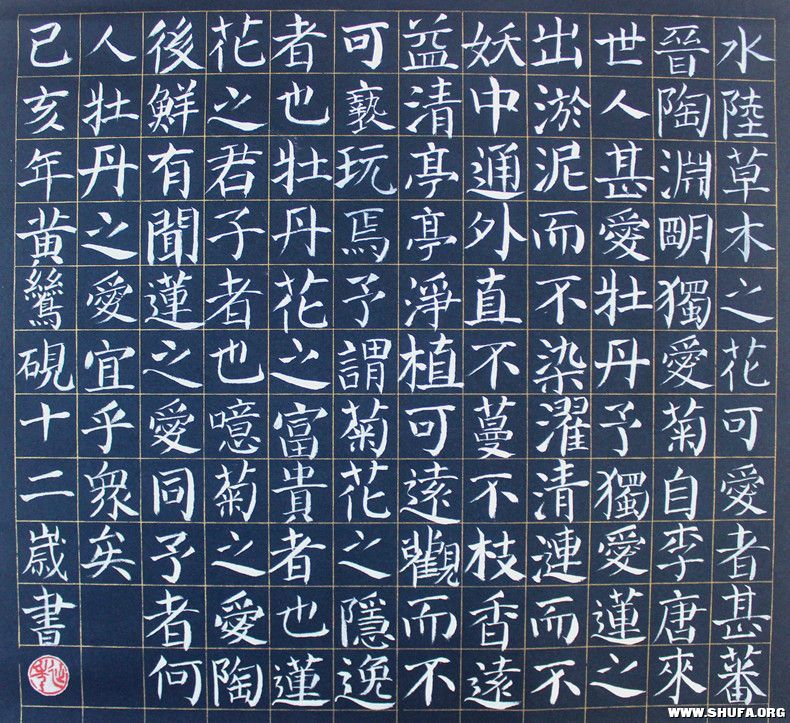 水陸草木之花可愛者甚蕃
晉陶淵朙獨愛菊自李唐來
世人甚愛牡丹予獨愛蓮之
出淤泥而不染濯清漣而不
妖中通外直不蔓不枝香遠
益清亭亭淨植可遠觀而不
可褻玩焉予謂菊花之隱逸
者也牡丹花之富貴者也蓮
花之君子者也噫菊之愛陶
後鮮有聞蓮之愛同予者何
人牡丹之愛宜乎衆矣
己亥年黃硯十二歲書
WWW.SHUFA.ORG